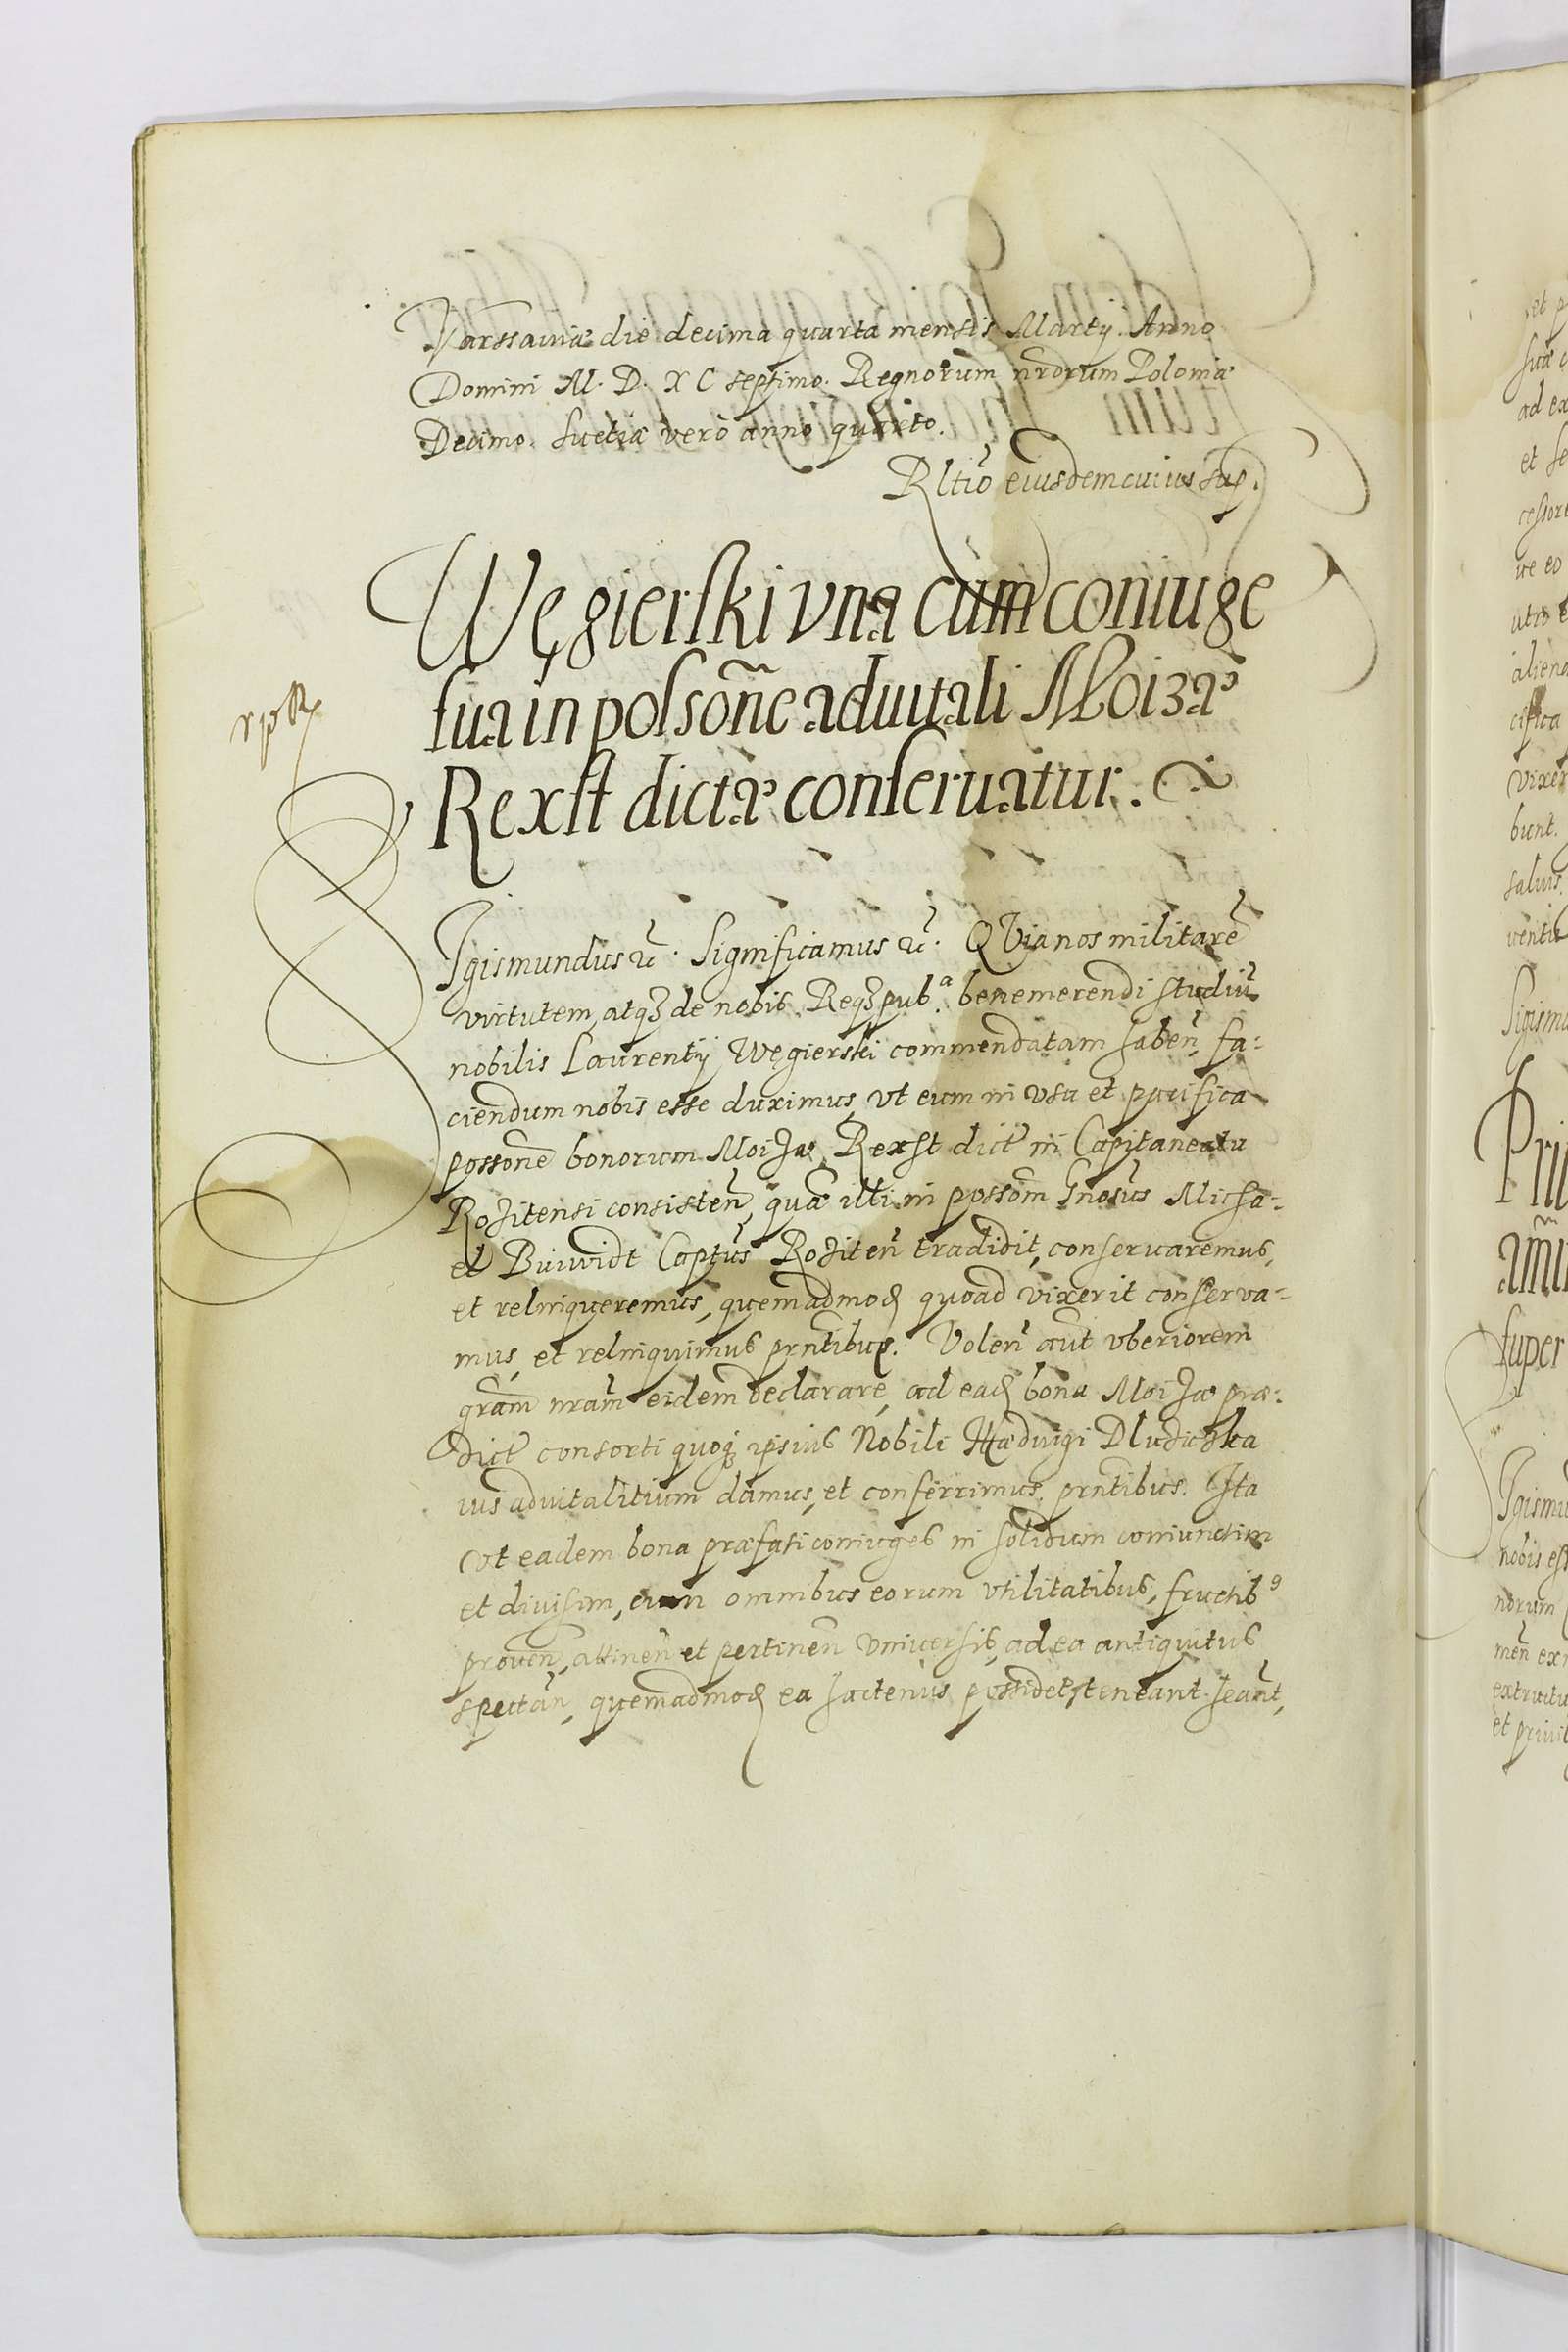 Varssauiæ die decima quarta mensis Martij. Anno
Domini M. D. X C septimo. Regnorum nrorum Poloniæ
Decimo. Suetiæ vero anno quarto.
Rltio eiusdem cuius sup.
Węgierski vna cum coniuge
sua in possone aduitali Moizæ
Rexst dictæ conseruatur.
Sigismundus etc. Significamus etc. QVia nos militare
virtutem, atqz de nobis Reqz pub.a benemerendi studiu
nobilis Laurentij Węgierski commendatam haben, fa-
ciendum nobis esse duximus, vt eum in vsu et pacifica
possone bonorum Moizæ Rexst dict in Capitaneatu
Rozitensi consisten, quæ illi in possom Gnosus Micha-
el Buiwidt Captus Roziten tradidit, conseruaremus,
et relinqueremus, quemadmod quoad vixerit conserva-
mus, et relinquimus prntibus. Volen aut vberiorem
gram nram eidem declarare, ad ead bona Moizæ præ-
dict consorti quoqz ipsius Nobili Hæduigi Dludiczka
ius aduitalitium damus, et conferrimus prntibus. Ita
vt eadem bona præfati coniuges in solidum coniunctim
et diuisim, cum omnibus eorum vtilitatibus, fructib9
prouen, attinen et pertinen vniuersis, ad ea antiquitus
spectan, quemadmod ea hactenus possidet, teneant heant,